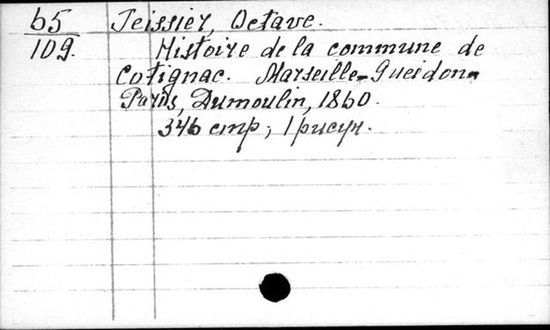 б5 Teissier, Octave.
109. Histoire de la commune de
Cotignac. Marseille-Gueidon-
Paris, Dumoulin, 1860.
346 стр; 1 рисун.